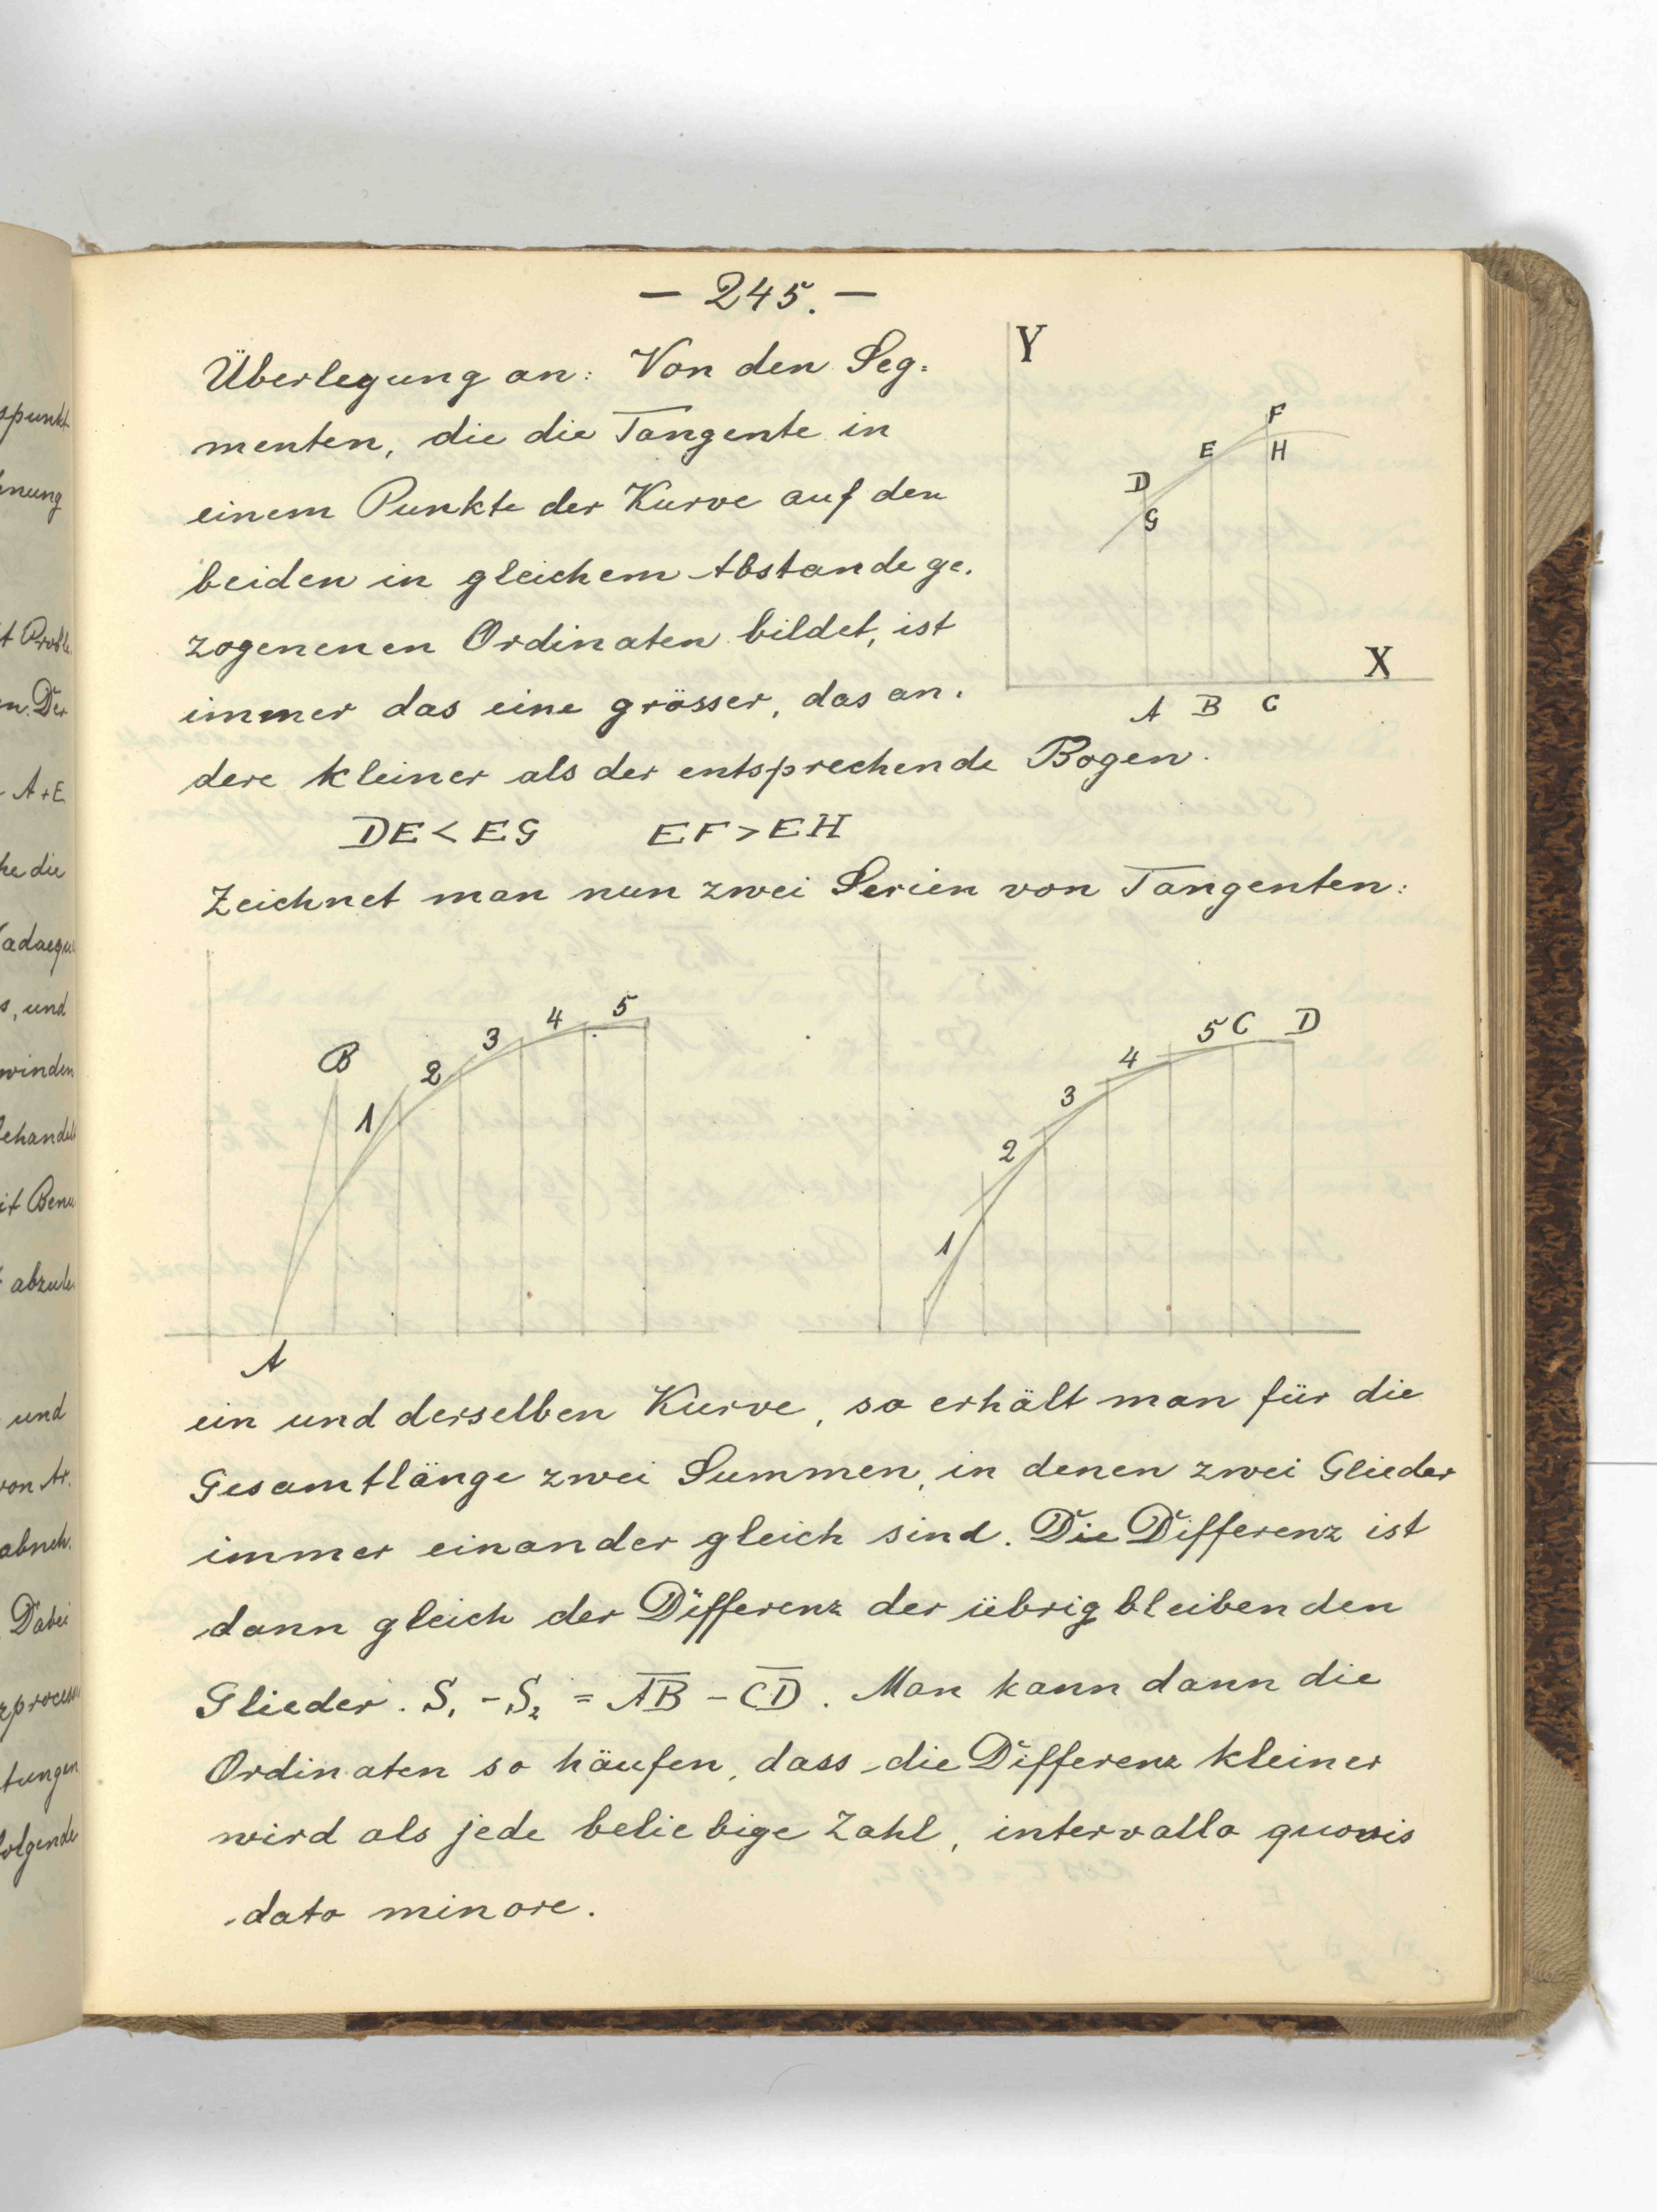 — 245. —
Überlegung an: Von den Seg-
menten, die die Tangente in
einem Punkte der Kurve auf den
beiden in gleichem Abstande ge-
zogenenen Ordinaten bildet, ist
immer das eine grösser, das an-
dere kleiner als der entsprechende Bogen.
Y
F
E
H
D
G
X
A B C
DE < EG EF > EH
Zeichnet man nun zwei Serien von Tangenten:
B
1
2
3
4
5
A
1
2
3
4
5 C D
ein und derselben Kurve, so erhält man für die
Gesamtlänge zwei Summen, in denen zwei Glieder
immer einander gleich sind. Die Differenz ist
dann gleich der Differenz der übrig bleibenden
Glieder. S₁ - S₂ = A̅B̅ - C̅D̅. Man kann dann die
Ordinaten so häufen, dass die Differenz kleiner
wird als jede beliebige Zahl, intervallo quovis
dato minore.
spunkt
t Proble
n. Der
A + E
he die
s, und
winden
abzule
und
von Ar.
abneh.
Dabei
tungen
olgende